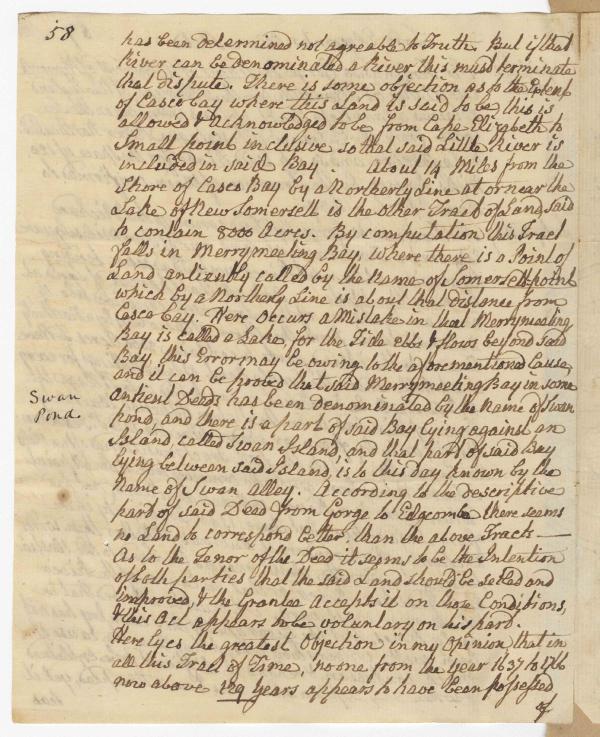 58
has been determined not agreable to Truth. But if that
River can be denominated a River this must terminate
that dispute. There is some objection as to the Extent
of Casco bay where this Land is said to be, this is
allowed & acknowledged to be from Cape Elizabeth to
Small point inclusive so that said Little River is
included in said Bay. About 14 Miles from the
Shore of Casco Bay by a Northerly Line at or near the
Lake of New Somersett is the other Tract of Land, said
to contain 8000 Acres. By computation this Tract
falls in Merrymeeting Bay, where there is a Point of
Land antiently called by the Name of Somersett point
which by a Northerly Line is about that distance from
Casco bay. Here occurs a Mistake in that Merrymeeting
Bay is called a Lake, for the Tide ebbs & flows beyond said
Bay, this Error may be owing to the aforementioned Cause,
and it can be proved that said Merrymeeting Bay in some
antient Deeds has been denominated by the Name of Swan
pond, and there is a part of said Bay lying against an
Island, called Swan Island, and that part of said Bay
lying between said Island, is to this day known by the
Name of Swan Alley. According to the descriptive
part of said Deed from Gorge to Edgcombe there seems
no Land to correspond better, than the above Tract —
As to the Tenor of the Deed it seems to be the Intention
of both parties that the said Land should be setled and
improved, & the Grantee Accepts it on those Conditions,
& this Act appears to be voluntary on his part.
Here lyes the greatest Objection in my Opinion, that in
all this Tract of Time, no one from the Year 1637 to 1766
now above 129 Years appears to have been possessed
of
Swan
Pond.